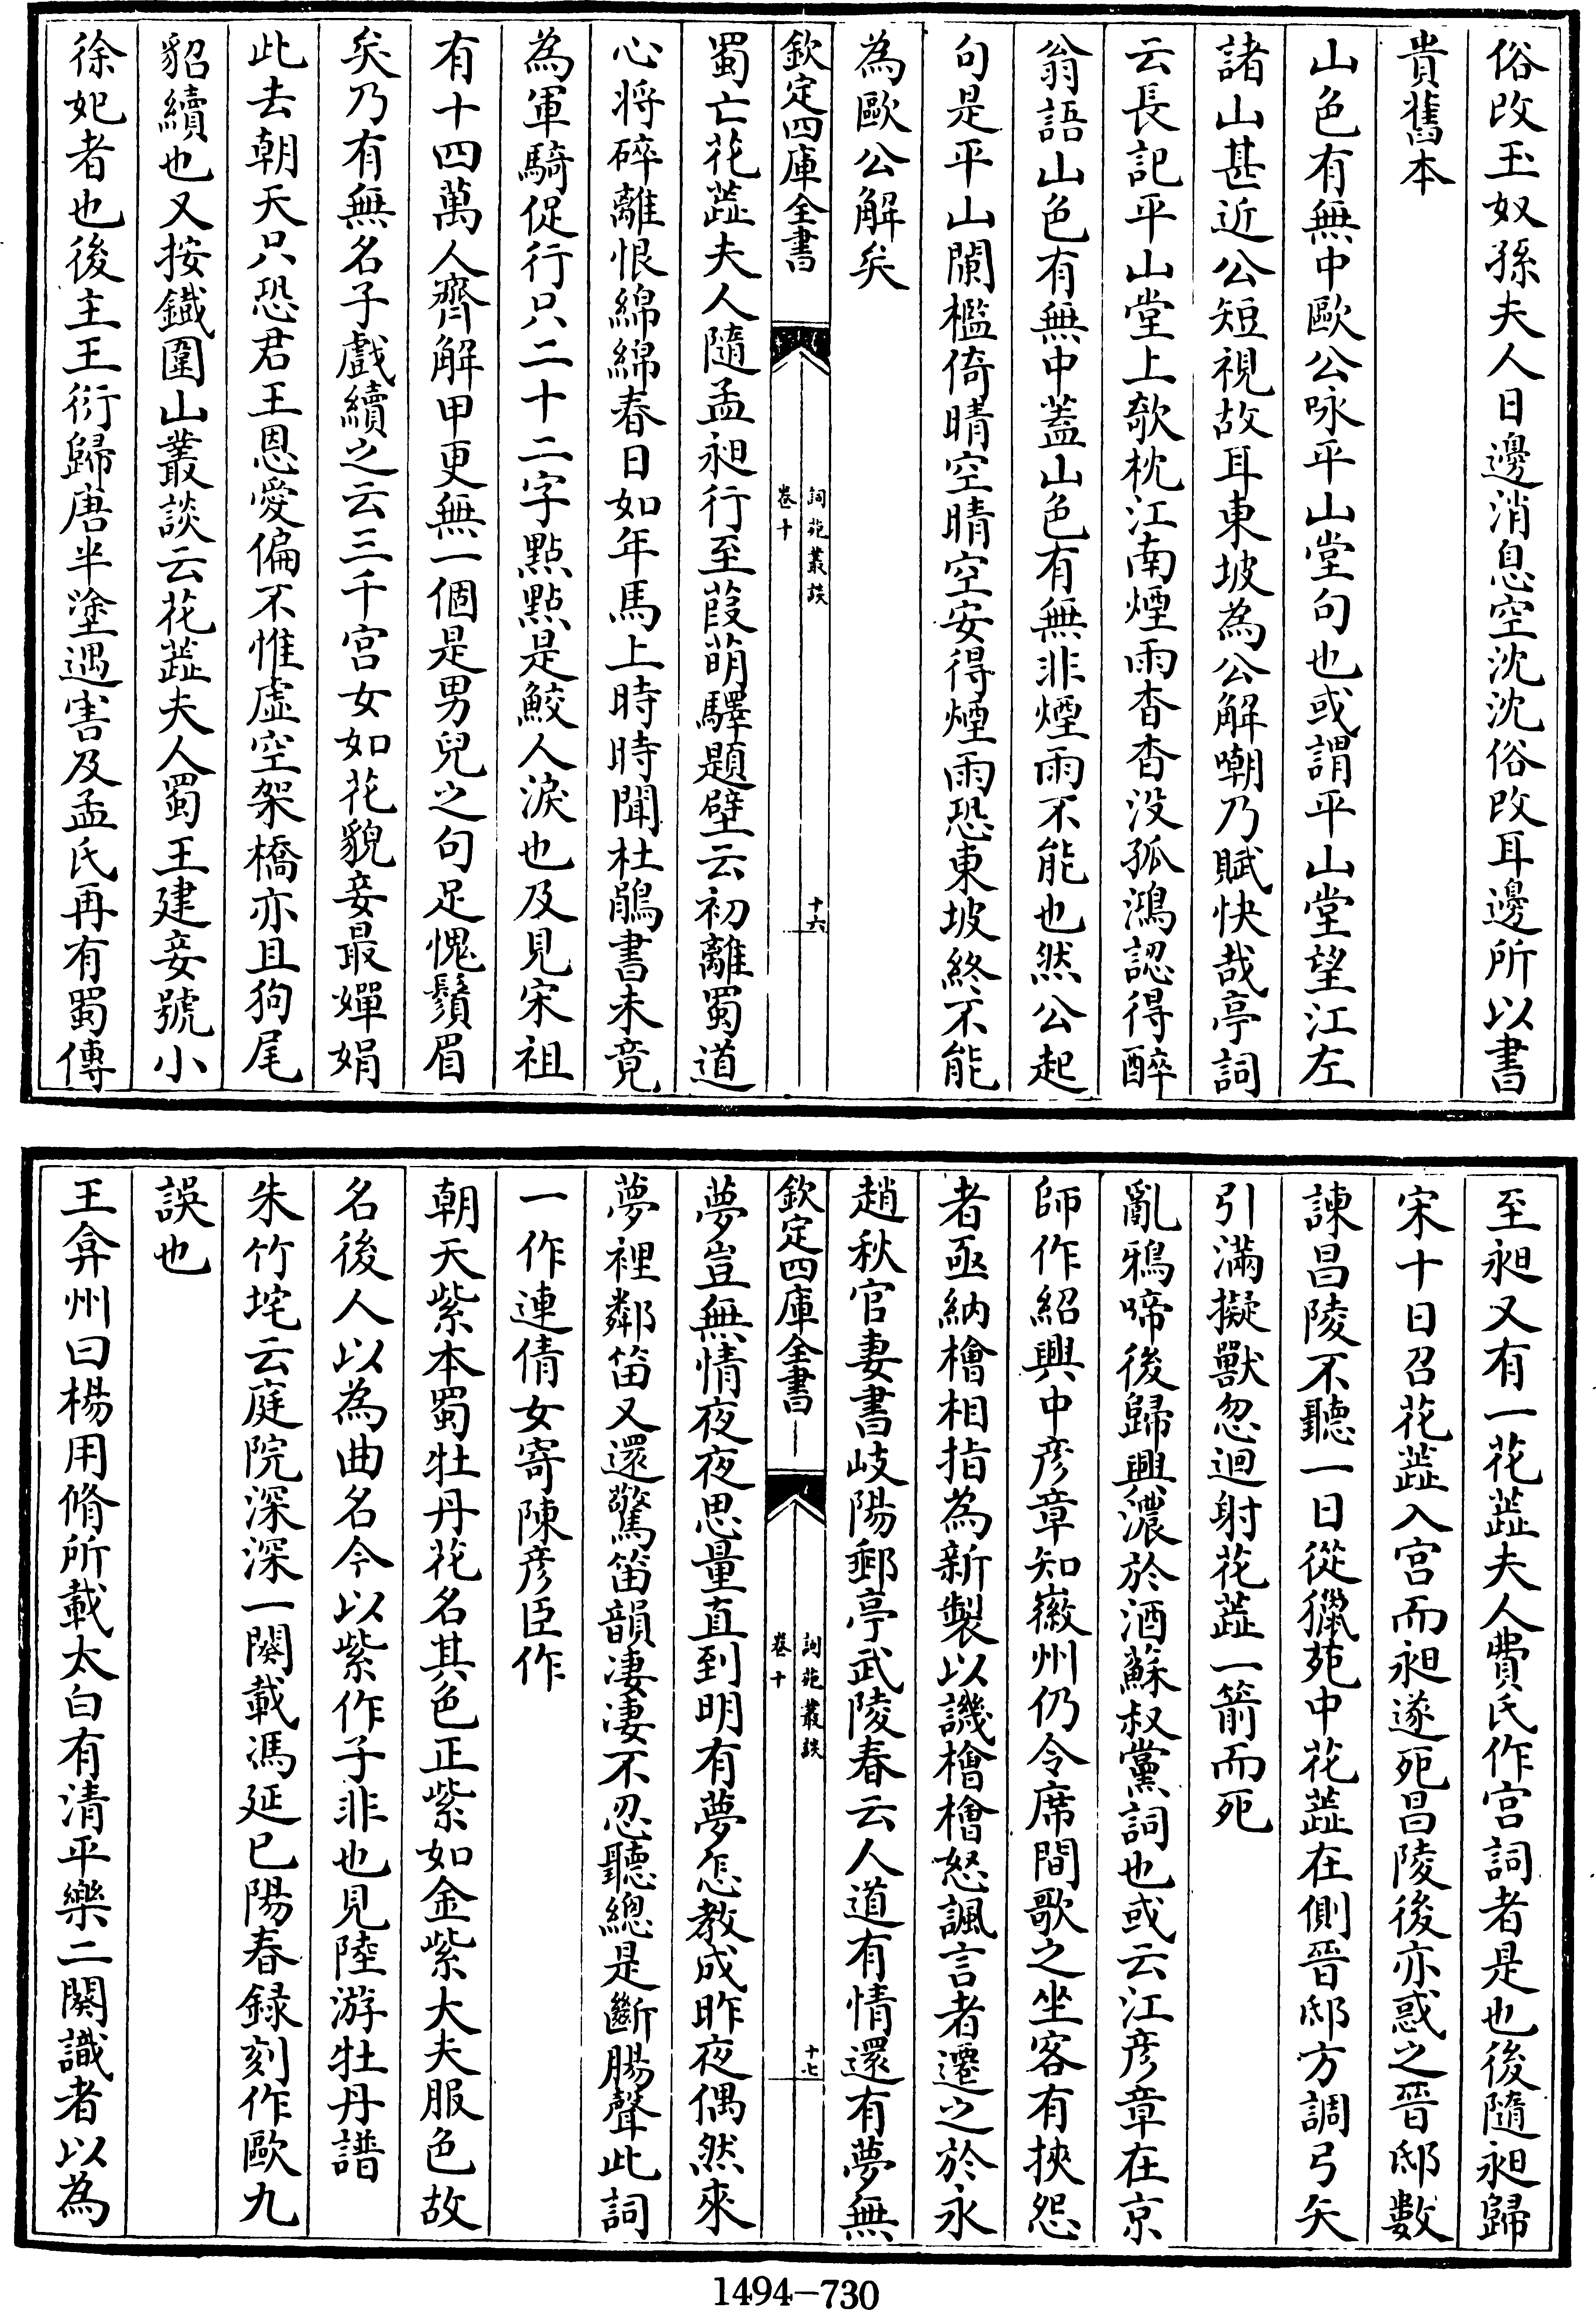 俗改玉奴孫夫人日邊消息空沈沈俗改耳邊所以書
貴舊本
山色有無中歐公咏平山堂句也或謂平山堂望江左
諸山甚近公短視故耳東坡為公解嘲乃賦快哉亭詞
云長記平山堂上欹枕江南煙雨杳杳没孤鴻認得醉
翁語山色有無中蓋山色有無非煙雨不能也然公起
句是平山闌檻倚晴空晴空安得煙雨恐東坡終不能
為歐公解矣
欽定四庫全書
詞苑叢談
卷十
十六
蜀亡花蕋夫人隨孟昶行至葭萌驛題壁云初離蜀道
心将碎離恨綿綿春日如年馬上時時聞杜鵑書未竟
為軍騎促行只二十二字點點是鮫人淚也及見宋祖
有十四萬人齊解甲更無一個是男兒之句足愧鬚眉
矣乃有無名子戲續之云三千宫女如花貌妾最嬋娟
此去朝天只恐君王恩愛偏不惟虚空架橋亦且狗尾
貂續也又按鐡圍山叢談云花蕋夫人蜀王建妾號小
徐妃者也後主王衍歸唐半塗遇害及孟氏再有蜀傳
至昶又有一花蕋夫人費氏作宫詞者是也後隨昶歸
宋十日召花蕋入宫而昶遂死昌陵後亦惑之晉邸數
諫昌陵不聽一日從獵苑中花蕋在側晉邸方調弓矢
引滿擬獸忽迴射花蕋一箭而死
亂鴉啼後歸興濃於酒蘇叔黨詞也或云江彦章在京
師作紹興中彦章知徽州仍令席間歌之坐客有挾怨
者亟納檜相指為新製以譏檜檜怒諷言者遷之於永
趙秋官妻書岐陽郵亭武陵春云人道有情還有夢無
欽定四庫全書
詞苑叢談
卷十
十七
夢豈無情夜夜思量直到明有夢怎教成昨夜偶然來
夢裡鄰笛又還驚笛韻凄凄不忍聽總是斷腸聲此詞
一作連倩女寄陳彦臣作
朝天紫本蜀牡丹花名其色正紫如金紫大夫服色故
名後人以為曲名今以紫作子非也見陸游牡丹譜
朱竹垞云庭院深深一闋載馮延巳陽春録刻作歐九
誤也
王弇州曰楊用脩所載太白有清平樂二闋識者以為
1494-730